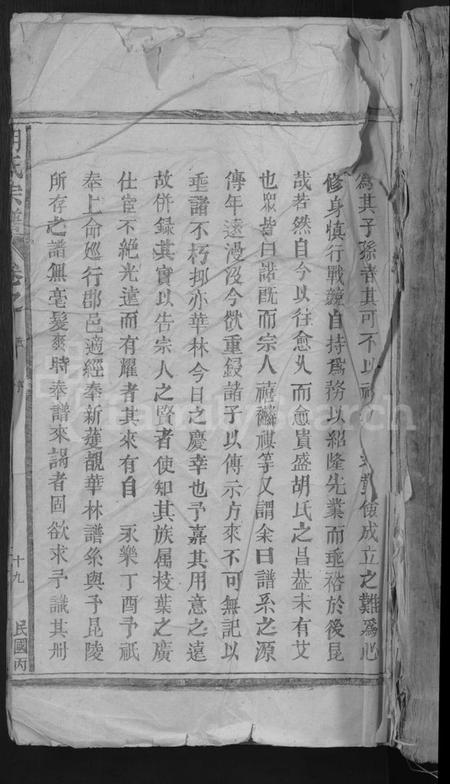 為其子孫者其可不以祖 成立之難爲心
修身慎行戰兢自持爲務以紹隆先業而垂裕於後昆
哉若然自今以往愈久而愈貴盛胡氏之昌葢未有艾
也眾皆曰諾既而宗人禧麟祺等又謂余曰譜系之源
傳年遠漫沒今欲重鋟諸子以傳示方來不可無記以
垂諸不朽抑亦華林今日之慶幸也予嘉其用意之遠
故併録其實以告宗人之賢者使知其族属枝葉之廣
仕宦不絶光遠而有耀者其來有自 永樂丁酉予祇
奉上命廵行郡邑適經奉新獲覩華林譜系與予昆陵
所存之譜無毫髮爽時奉譜來謁者固欲求予識其册
胡氏宗譜 卷之 序
十九 民國丙
FamilySearch